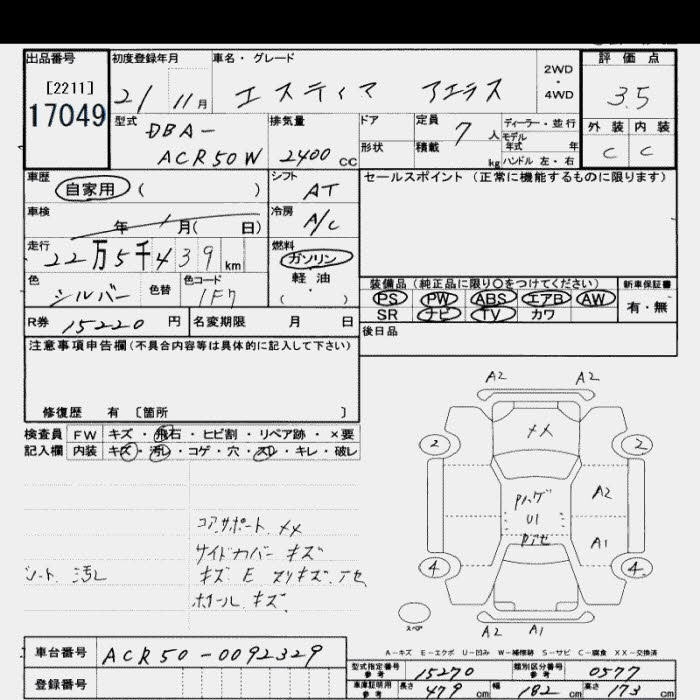 出品番号 初度登録年月 車名・グレード 2WD・4WD 評価点
[2211]
17049
21 11月 エスティマ アエラス 3.5
型式 排気量 ドア 定員 7 人 ディーラー・並行 外装 内装
DBA-
ACR50W 2400 cc 形状 積載 kg モデル年式 年 ハンドル 左・右 C C
車歴 自家用 ( ) シフト AT セールスポイント (正常に機能するものに限ります)
車検 年 月( 日) 冷房 A/C
走行 22万5千439 km 燃料 ガソリン
軽・油
( )
色 シルバー 色替 色コード 1F7
装備品 (純正品に限り〇をつけてください) 新車保証書
PS PW ABS エアB AW 有・無
SR ナビ TV カワ
R券 15220 円 名変期限 月 日 後日品
注意事項申告欄(不具合内容等は具体的に記入して下さい)
修復歴 有 〔箇所 〕
検査員 FW キズ・飛石・ヒビ割・リペア跡・×要
記入欄 内装 キズ・汚レ・コゲ・穴・スレ・キレ・破レ
A2 A2
XX
2 2
A2
Pハゲ
U1
Pアセ
A1
4 4
スペア
A2 A1
コアサポート XX
サイドカバー キズ
シート 汚レ
キズ E スリキズ アセ
ホイール キズ
A-キズ E-エクボ U-凹み W-補修跡 S-サビ C-腐食 XX-交換済
車台番号 ACR50-0092329
登録番号
型式指定番号 参考 15270 類別区分番号 参考 0577
車庫証明用 参考 長さ 479 cm 幅 182 cm 高さ 173 cm